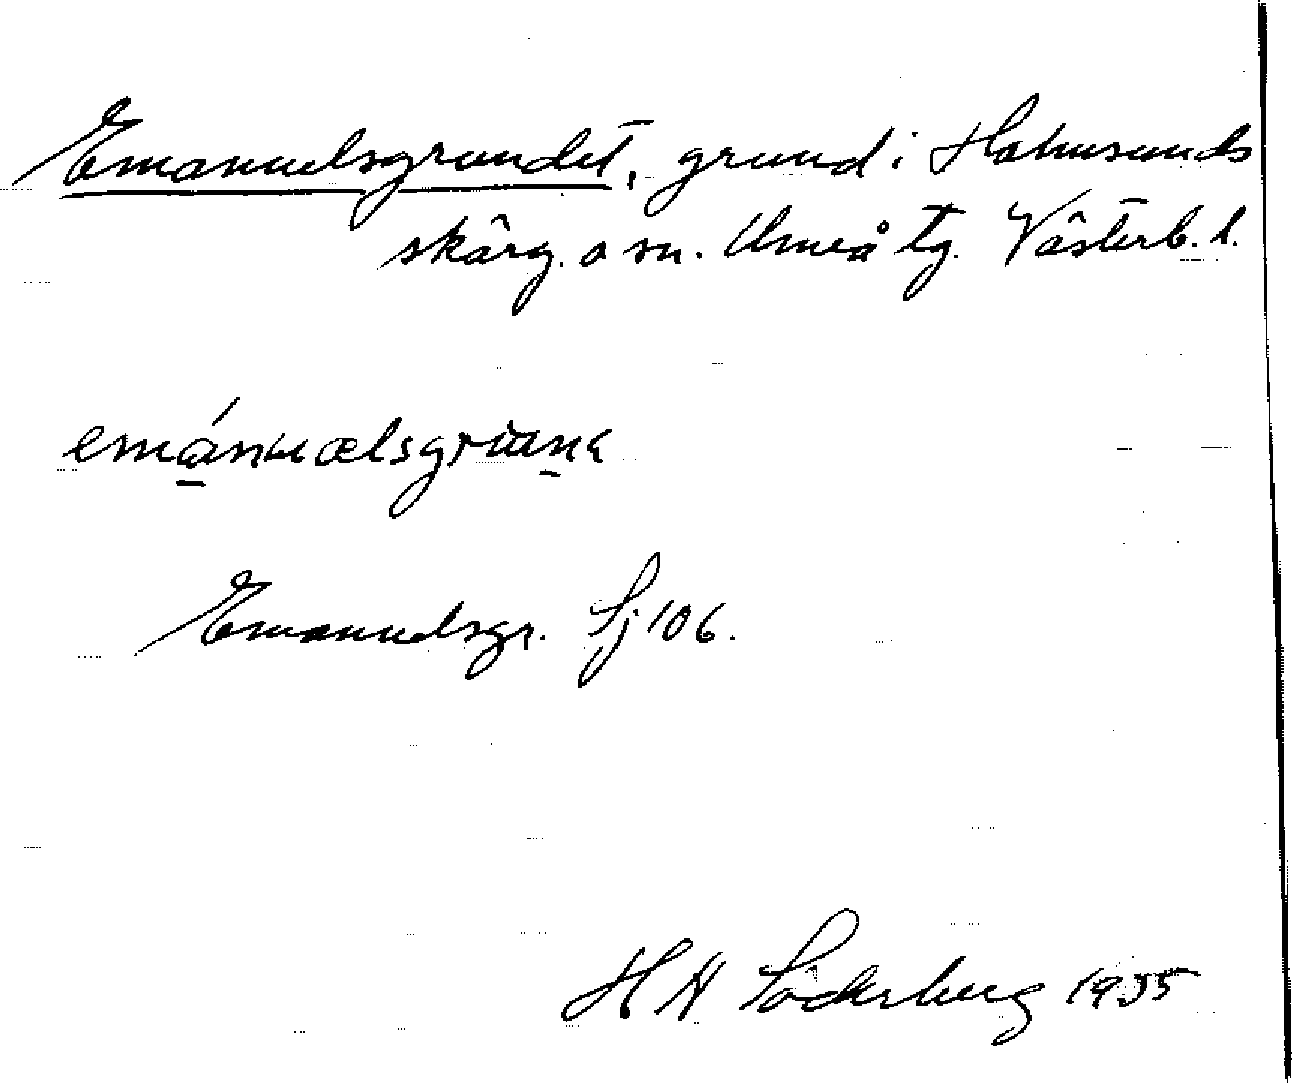 Emanuelsgrundet, grund i Holmsunds
skärg. o sn. Umeå tg. Västerb. l.
emánuælsgrunɛ
Emanuelsgr. Sj 106.
H H Söderberg 1935